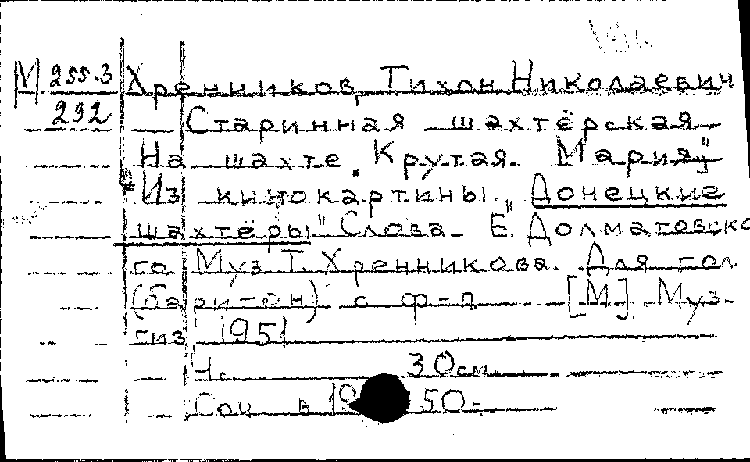 М 255-3 Хренников, Тихон Николаевич
292 Старинная шахтёрская
На шахте "Крутая Мария"
Из кинокартины "Донецкие
шахтёры" Слова Е. Долматовско
го Муз Т. Хренникова. Для гол
(баритон) с ф-п [М] Муз
гиз 1951
30см
Соч в 50-